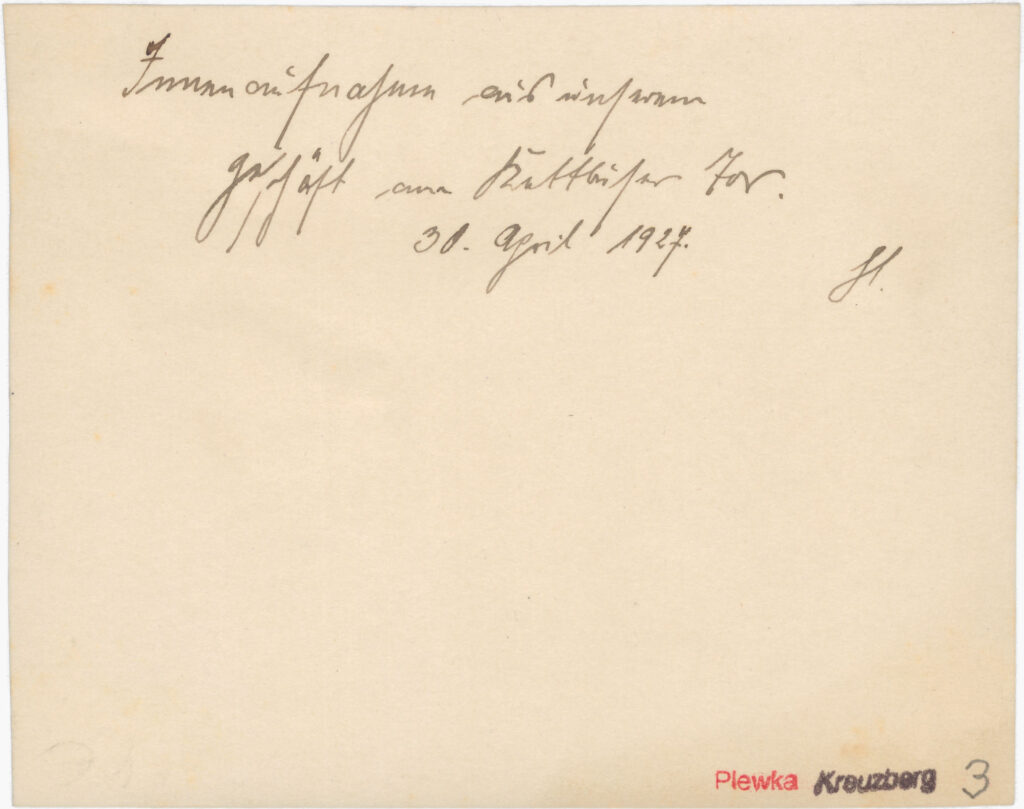 Innenaufnahme aus unserem
Geschäft am Kottbuser Tor.
30. April 1927.
Plewka Kreuzberg 3